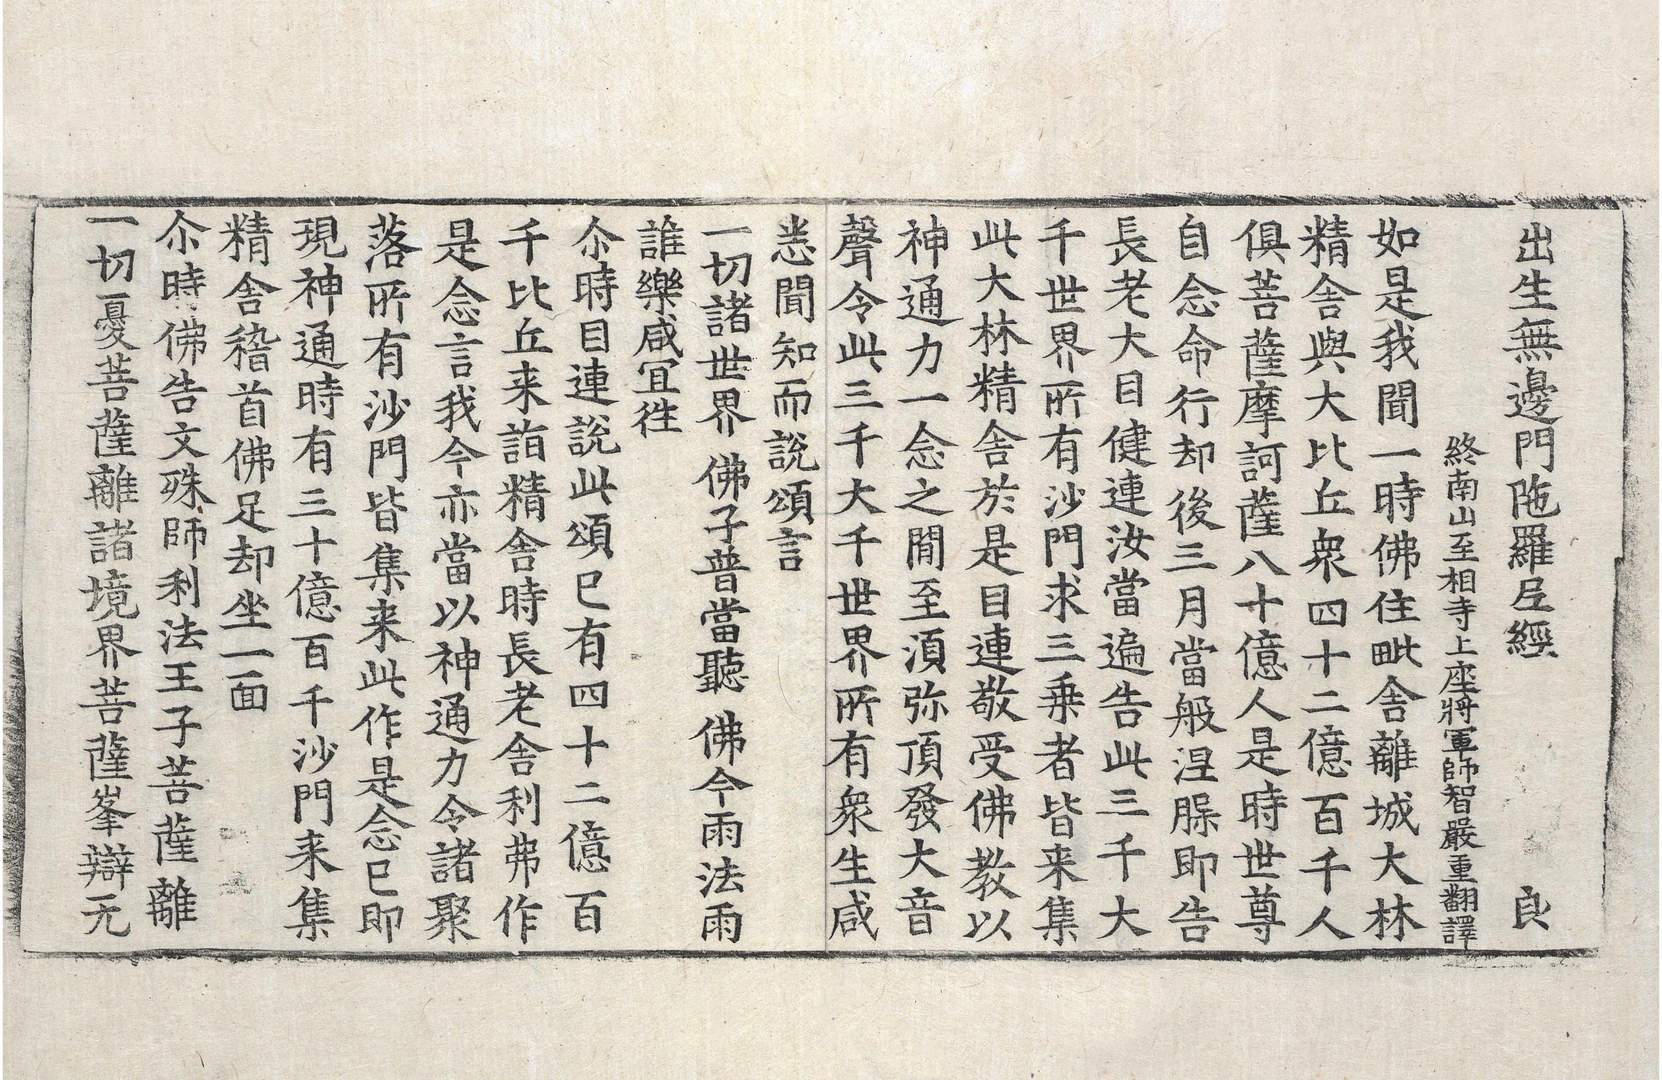 出生無邊門陁羅尼經 良
終南山至相寺上座將軍師智嚴重翻譯
如是我聞一時佛住毗舍離城大林
精舍與大比丘衆四十二億百千人
俱菩薩摩訶薩八十億人是時世尊
自念命行却後三月當般涅脲即告
長老大目健連汝當遍告此三千大
千世界所有沙門求三乗者皆来集
此大林精舍於是目連敬受佛教以
神通力一念之閒至湏弥頂發大音
聲令此三千大千世界所有衆生咸
悉聞知而說頌言
一切諸世界 佛子普當聽 佛今雨法雨
誰樂咸冝徃
尒時目連說此頌已有四十二億百
千比丘来詣精舍時長老舍利弗作
是念言我今亦當以神通力令諸聚
落所有沙門皆集来此作是念已即
現神通時有三十億百千沙門来集
精舍稽首佛足却坐一面
尒時佛告文殊師利法王子菩薩離
一切憂菩薩離諸境界菩薩峯辯无